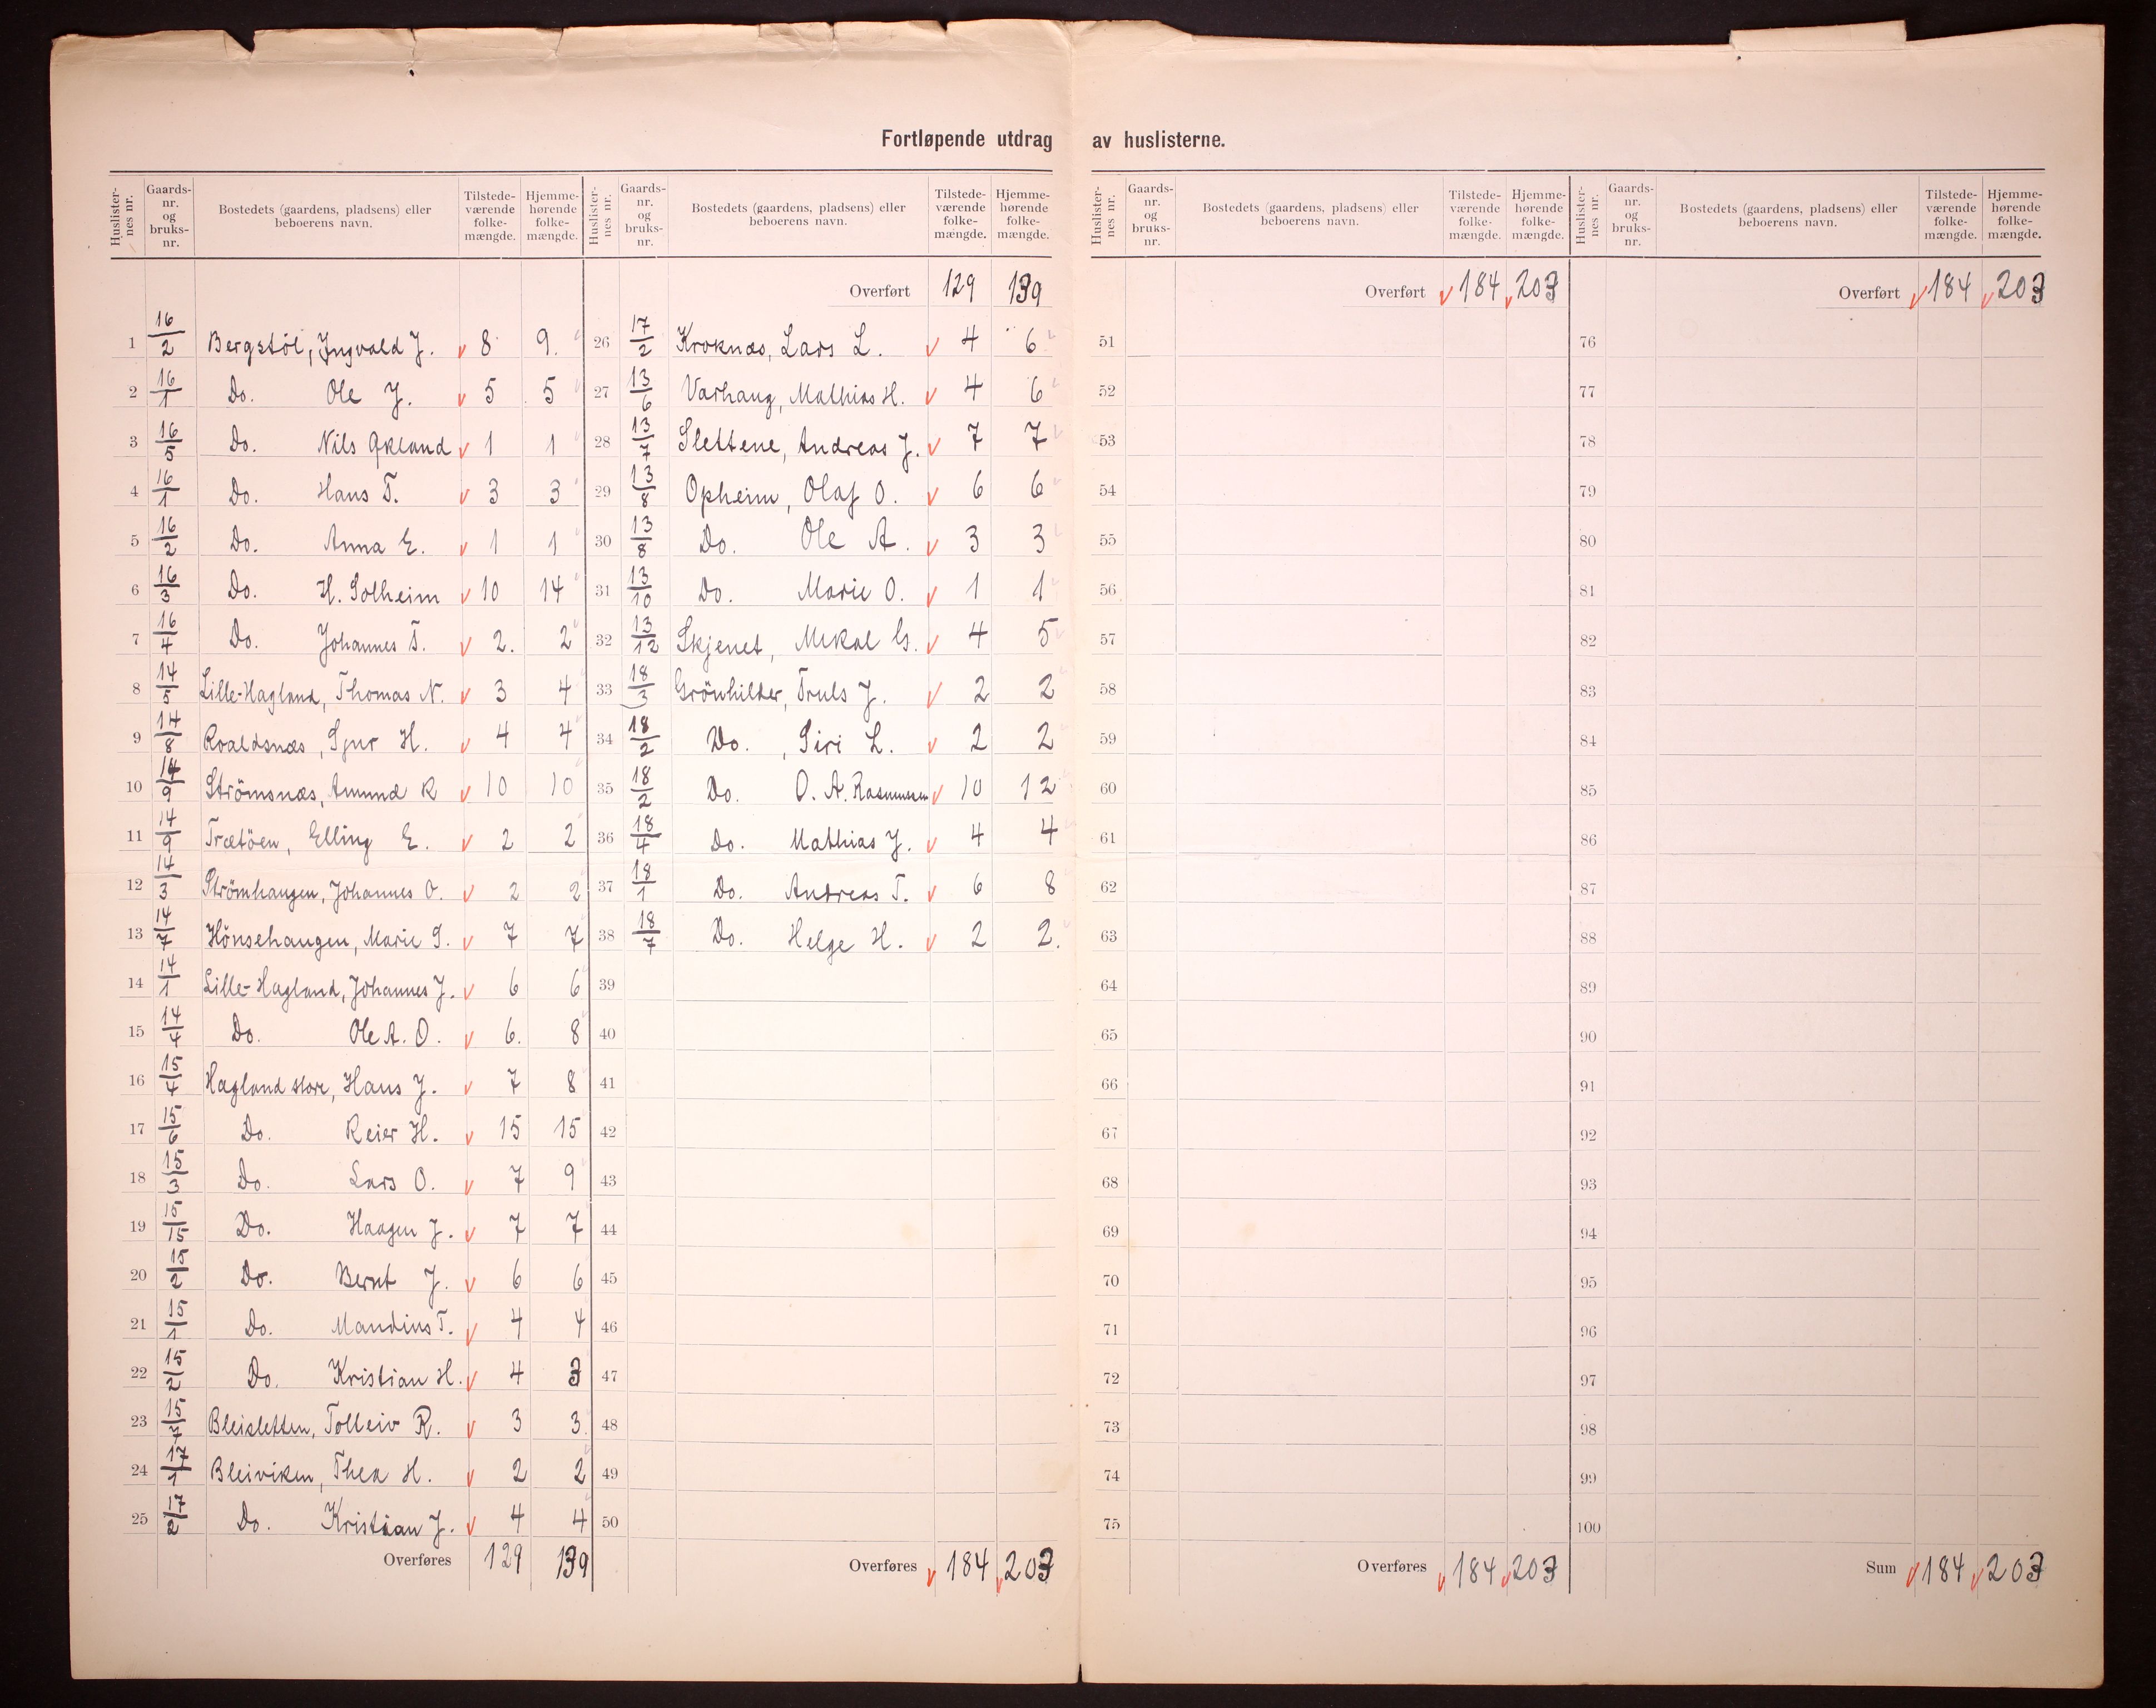 Fortløpende utdrag av huslisterne.
Huslister-nes nr. Gaards-nr. og bruks-nr. Bostedets (gaardens, pladsens) eller beboerens navn. Tilstede-værende folke-mængde. Hjemme-hørende folke-mængde.
1 16/2 Bergstöl, Ingvald J. 8 9.
2 16/1 Do. Ole J. 5 5
3 16/5 Do. Nils Økland 1 1
4 16/1 Do. Hans T. 3 3
5 16/2 Do. Anna E. 1 1
6 16/3 Do. H. Solheim 10 14
7 16/4 Do. Johannes T. 2. 2
8 14/5 Lille-Hagland, Thomas N. 3 4
9 14/8 Roaldsnæs, Sjur H. 4 4
10 14/9 Strömsnæs, Amund R 10 10
11 14/9 Trætöen, Elling E. 2 2
12 14/3 Strömhaugen, Johannes O. 2 2
13 14/7 Hönsehaugen, Marie S. 7 7
14 14/1 Lille-Hagland, Johannes J. 6 6
15 14/4 Do. Ole A. O. 6. 8
16 15/4 Hagland store, Hans J. 7 8
17 15/6 Do. Reier H. 15 15
18 15/3 Do. Lars O. 7 9
19 15/15 Do. Haagen J. 7 7
20 15/2 Do. Bernt J. 6 6
21 15/1 Do. Mandius T. 4 4
22 15/2 Do. Kristian H. 4 3
23 15/7 Bleisletten, Tolleiv R. 3 3.
24 17/1 Bleiviken, Thea H. 2 2
25 17/2 Do. Kristian J. 4 4
Overføres 129 139
Huslister-nes nr. Gaards-nr. og bruks-nr. Bostedets (gaardens, pladsens) eller beboerens navn. Tilstede-værende folke-mængde. Hjemme-hørende folke-mængde.
Overført 129 139
26 17/2 Kroknæs, Lars L. 4 6
27 13/6 Varhaug, Mathias H. 4 6
28 13/7 Slettene, Andreas J. 7 7
29 13/8 Opheim, Olaf O. 6 6
30 13/8 Do. Ole A. 3 3
31 13/10 Do. Marie O. 1 1
32 13/12 Skjenet, Mikal G. 4 5
33 18/3 Grönhilder, Truls J. 2 2
34 18/2 Do. , Siri L. 2 2
35 18/2 Do. O. A. Rasmussen 10 12
36 18/4 Do. Mathias J. 4 4
37 18/1 Do. Andreas T. 6 8
38 18/7 Do. Helge H. 2 2.
39
40
41
42
43
44
45
46
47
48
49
50
Overføres 184 203
Huslister-nes nr. Gaards-nr. og bruks-nr. Bostedets (gaardens, pladsens) eller beboerens navn. Tilstede-værende folke-mængde. Hjemme-hørende folke-mængde.
Overført 184 203
51
52
53
54
55
56
57
58
59
60
61
62
63
64
65
66
67
68
69
70
71
72
73
74
75
Overføres 184 203
Huslister-nes nr. Gaards-nr. og bruks-nr. Bostedets (gaardens, pladsens) eller beboerens navn. Tilstede-værende folke-mængde. Hjemme-hørende folke-mængde.
Overført 184 203
76
77
78
79
80
81
82
83
84
85
86
87
88
89
90
91
92
93
94
95
96
97
98
99
100
Sum 184 203